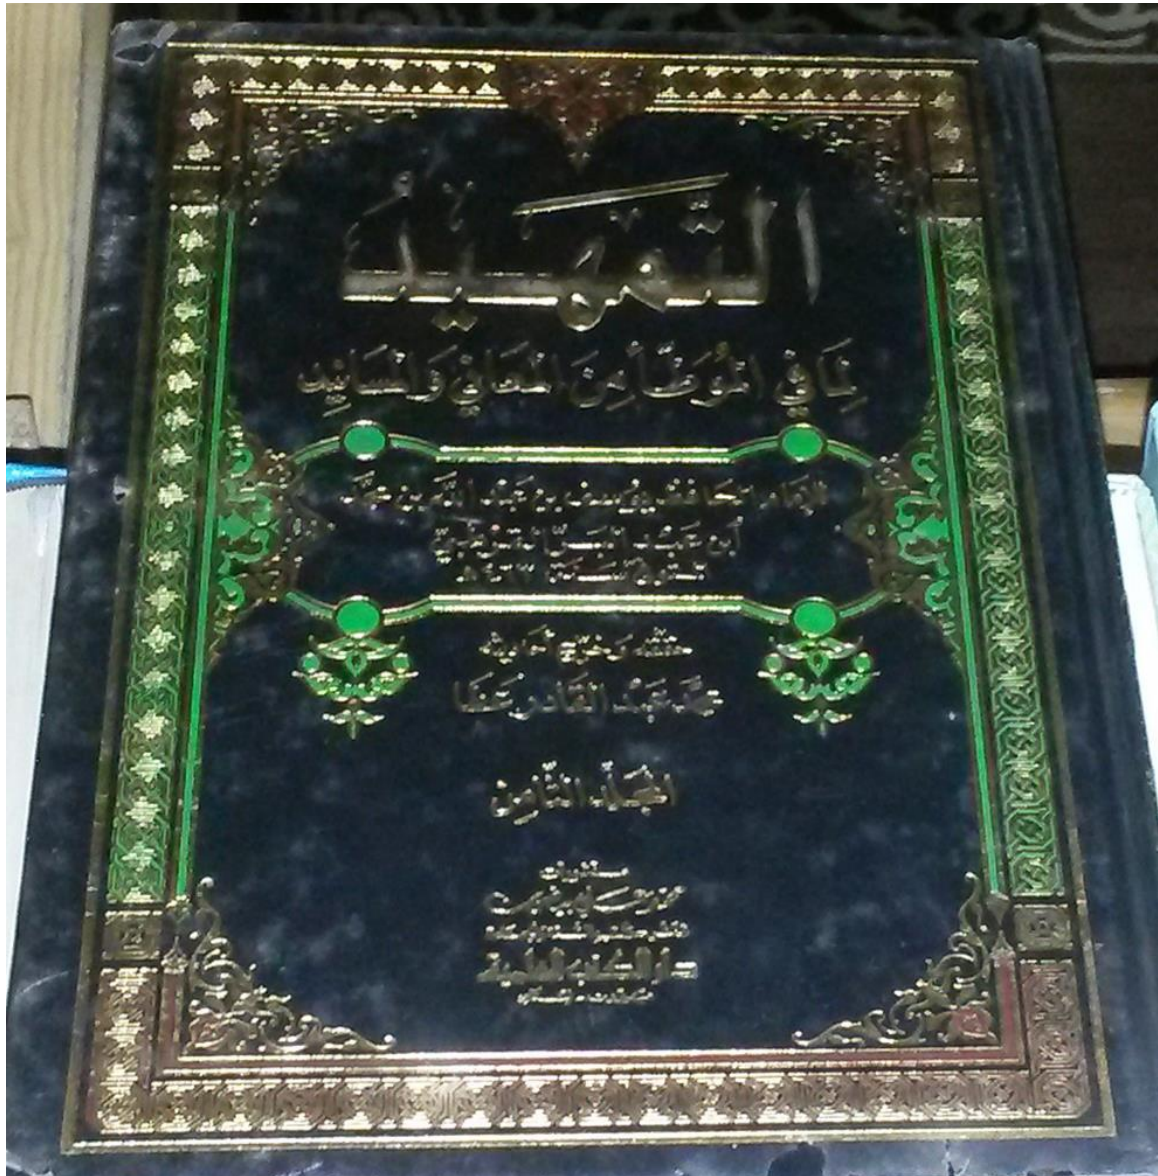 التمهيد
لِمَا فِي المُوَطَّأ مِنَ المَعَانِي وَالمَسَانِيد
للإمام الحافظ يوسف بن عبد الله بن محمد
ابن عبد البر القرطبي
المتوفى سنة ٤٦٣ هـ
حققه وخرج أحاديثه
محمد عبد القادر عطا
المجلد الثامن
منشورات
محمد علي بيضون
دار الكتب العلمية
بيروت - لبنان